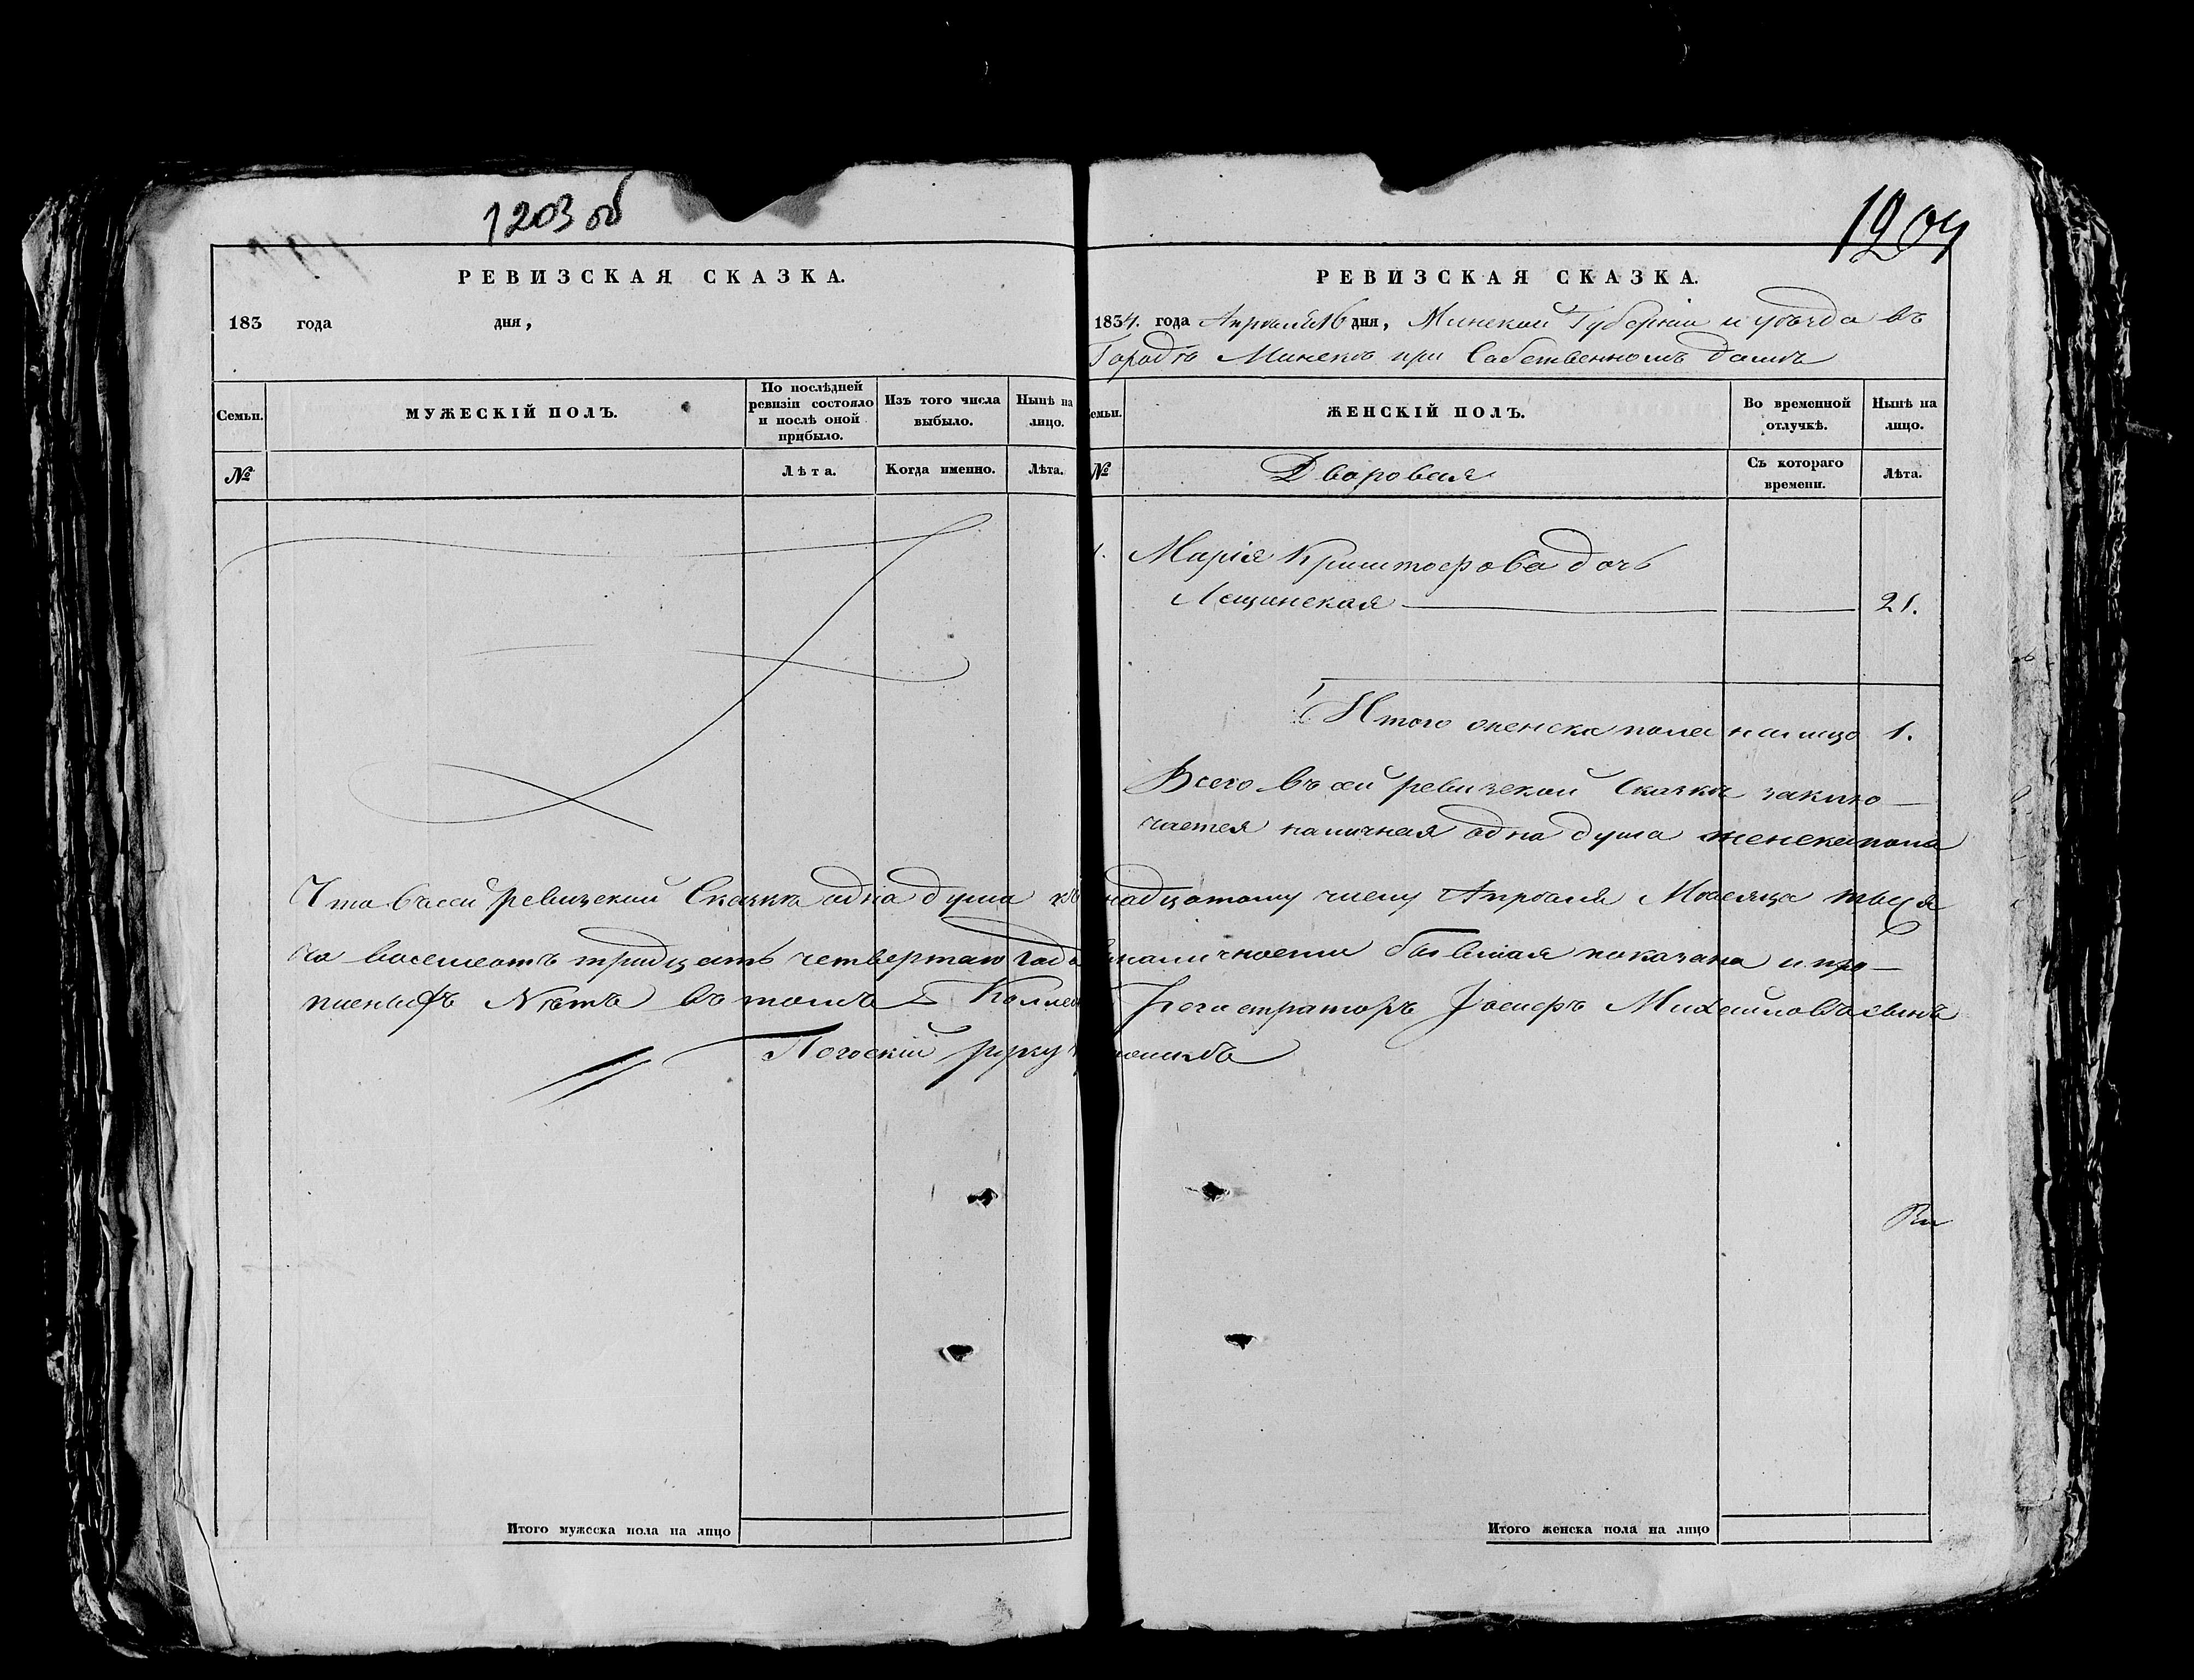 1203 об
РЕВИЗСКАЯ СКАЗКА.
183 года дня,
Семьи.
МУЖЕСКІЙ ПОЛЪ.
По послѣдней
ревизіи состояло
и послѣ оной
прибыло.
Изъ того числа
выбыло.
Нынѣ на
лицо.
№
Лѣта.
Когда именно.
Лѣта.
1204
РЕВИЗСКАЯ СКАЗКА.
1834. года Апрѣля 16 дня, Минской Губерніи и уѣзда въ
Городѣ Минскѣ при Собственномъ домѣ
емьи.
ЖЕНСКІЙ ПОЛЪ.
Во временной
отлучкѣ.
Нынѣ на
лицо.
№
Дворовая
Съ котораго
времени.
Лѣта.
1. Марія Криштофова дочь
Лещинская 21.
Итого женска пола налицо 1.
Всего въ сей ревизской Сказкѣ заклю
чается наличная одна душа женска пола
Что въ сей ревизской Сказкѣ одна душа надцатому числу Апрѣля Мѣсяца тыся
ча восемсотъ тридцать четвертаго года наличности бывшая показана и про
Нѣтъ въ томъ Коллеж Регистраторъ Іосифъ Михайловъ сынъ
Итого мужеска пола на лицо
Итого женска пола на лицо